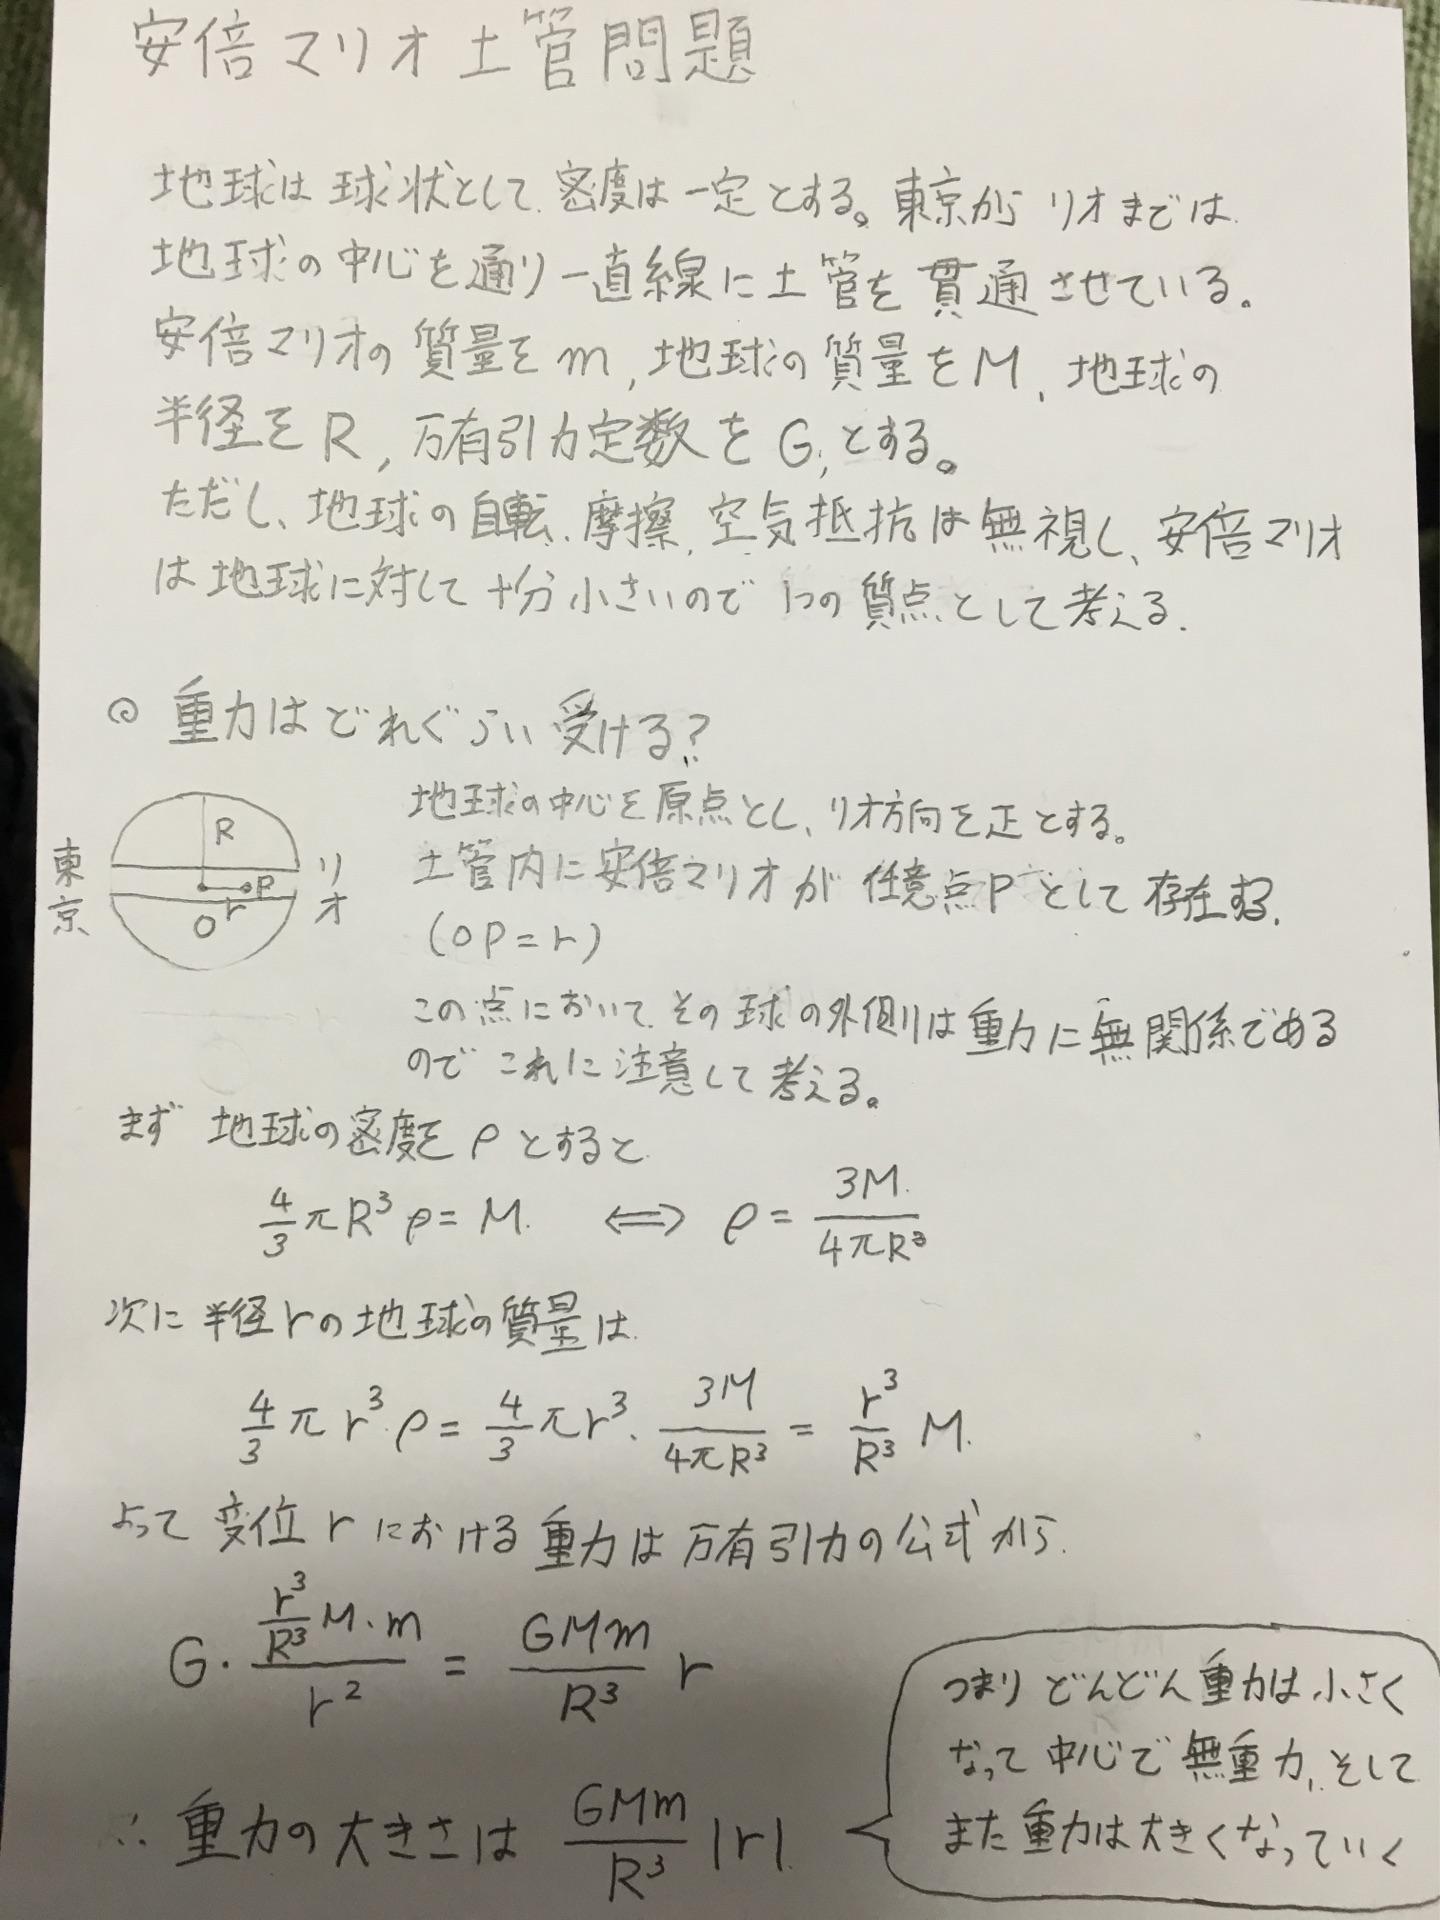 安倍マリオ土管問題
地球は球状として密度は一定とする。東京からリオまでは
地球の中心を通り一直線に土管を貫通させている。
安倍マリオの質量をm, 地球の質量をM, 地球の
半径をR, 万有引力定数をG,とする。
ただし、地球の自転, 摩擦, 空気抵抗は無視し、安倍マリオ
は地球に対して十分小さいので1つの質点として考える.
◎ 重力はどれぐらい受ける?
東京
R
O
r
P
リオ
地球の中心を原点とし、リオ方向を正とする。
土管内に安倍マリオが任意点Pとして存在する.
(OP=r)
この点において, その球の外側は重力に無関係である
のでこれに注意して考える。
まず 地球の密度をρとすると
4/3 πR³ρ = M. ⟺ ρ = 3M/4πR³
次に半径rの地球の質量は
4/3 πr³ρ = 4/3 πr³・3M/4πR³ = r³/R³ M.
よって変位rにおける重力は万有引力の公式から.
G・(r³/R³ M・m)/r² = GMm/R³ r
∴ 重力の大きさは GMm/R³ |r|
つまりどんどん重力は小さく
なって中心で無重力, そして
また重力は大きくなっていく